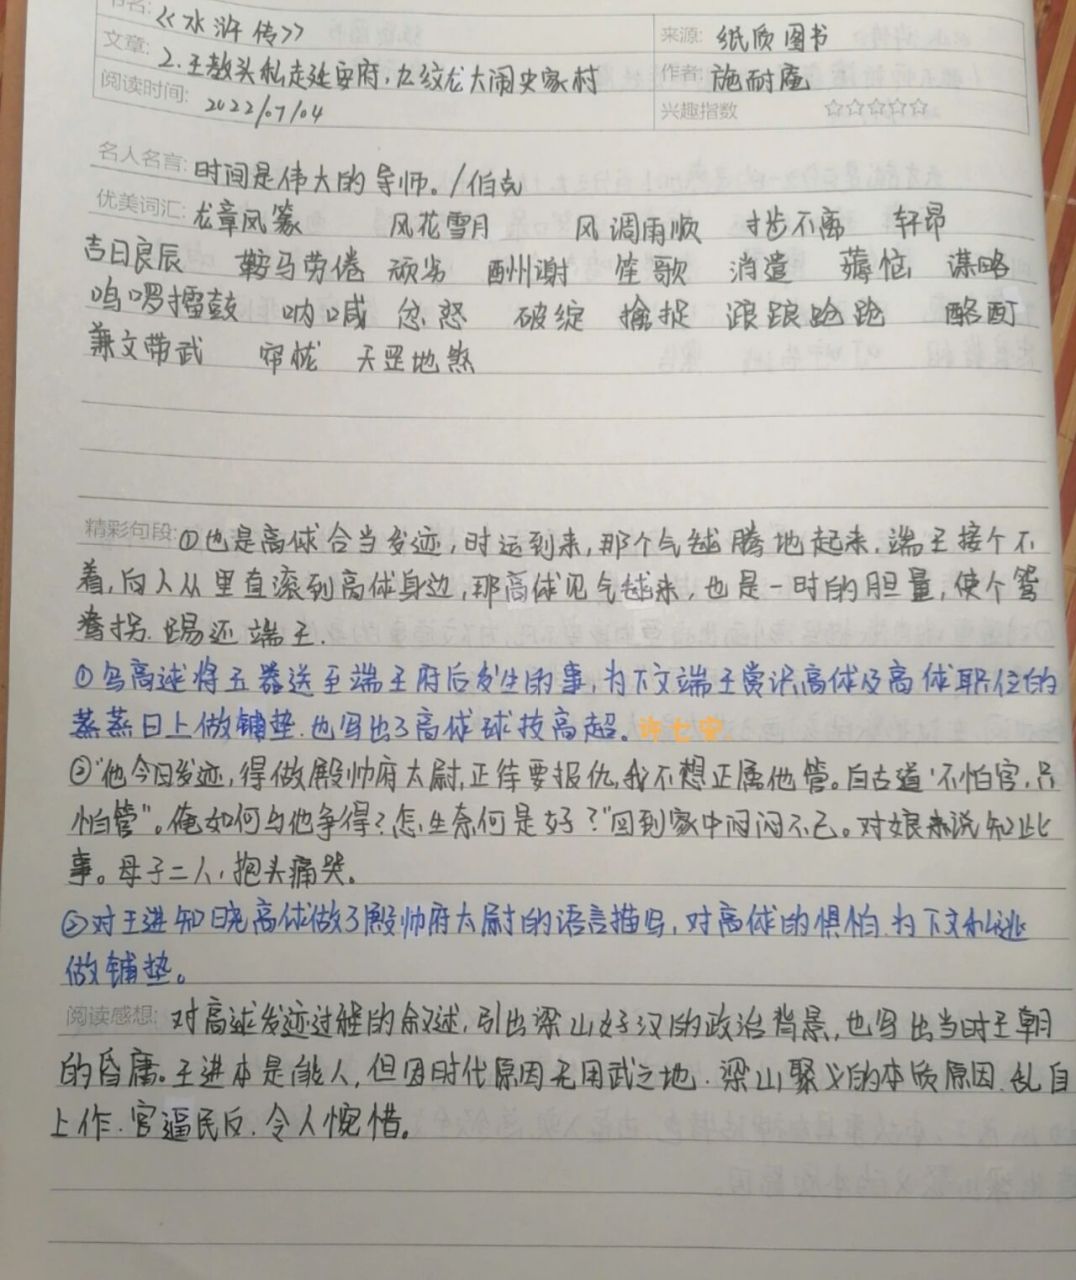 书名: 《水浒传》
来源: 纸质图书
文章: 2.王教头私走延安府,九纹龙大闹史家村
作者: 施耐庵
阅读时间: 2022/07/04
兴趣指数 ☆☆☆☆☆
名人名言: 时间是伟大的导师。/伯克
优美词汇: 龙章凤篆 风花雪月 风调雨顺 寸步不离 轩昂
吉日良辰 鞍马劳倦 顽劣 酬谢 笙歌 消遣 薅恼 谋略
鸣啰擂鼓 呐喊 忿怒 破绽 擒捉 踉踉跄跄 酩酊
兼文带武 帘栊 天罡地煞
精彩句段: ①也是高俅合当发迹,时运到来,那个气毬腾地起来,端王接个不
着,向人丛里直滚到高俅身边,那高俅见气毬来,也是一时的胆量,使个鸳
鸯拐.踢还端王.
①写高逑将玉器送至端王府后发生的事,为下文端王赏识高俅及高俅职位的
蒸蒸日上做铺垫.也写出了高俅球技高超。许七安.
②"他今日发迹,得做殿帅府太尉,正待要报仇,我不想正属他管。自古道'不怕官,只
怕管"。俺如何与他争得?怎生奈何是好?"回到家中闷闷不已。对娘来说知此
事。母子二人,抱头痛哭。
②对王进知晓高俅做了殿帅府太尉的语言描写,对高俅的惧怕.为下文私逃
做铺垫。
阅读感想: 对高逑发迹过程的叙述,引出梁山好汉的政治背景,也写出当时王朝
的昏庸。王进本是能人,但因时代原因无用武之地.梁山聚义的本质原因.乱自
上作.官逼民反.令人惋惜。